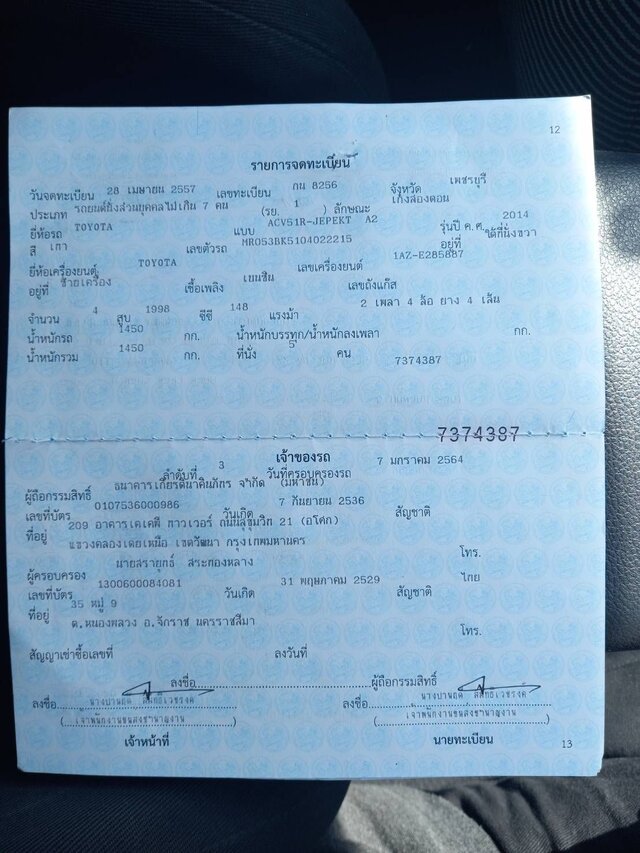 12
รายการจดทะเบียน
วันจดทะเบียน 28 เมษายน 2557 เลขทะเบียน กน 8256 จังหวัด เพชรบุรี
ประเภท รถยนต์นั่งส่วนบุคคลไม่เกิน 7 คน (รย. 1 ) ลักษณะ เก๋งสองตอน
ยี่ห้อรถ TOYOTA แบบ ACV51R-JEPEKT A2 รุ่นปี ค.ศ. 2014
สี เทา เลขตัวรถ MR053BK5104022215 อยู่ที่ ใต้ที่นั่งขวา
ยี่ห้อเครื่องยนต์ TOYOTA เลขเครื่องยนต์ 1AZ-E285887
อยู่ที่ ซ้ายเครื่อง เชื้อเพลิง เบนซิน เลขถังแก๊ส
จำนวน 4 สูบ 1998 ซีซี 148 แรงม้า 2 เพลา 4 ล้อ ยาง 4 เส้น
น้ำหนักรถ 1450 กก. น้ำหนักบรรทุก/น้ำหนักลงเพลา กก.
น้ำหนักรวม 1450 กก. ที่นั่ง 5 คน 7374387
7374387
เจ้าของรถ
ลำดับที่ 3 วันที่ครอบครองรถ 7 มกราคม 2564
ผู้ถือกรรมสิทธิ์ ธนาคารเกียรตินาคินภัทร จำกัด (มหาชน)
เลขที่บัตร 0107536000986 วันเกิด 7 กันยายน 2536 สัญชาติ
ที่อยู่ 209 อาคารเคเคพี ทาวเวอร์ ถนนสุขุมวิท 21 (อโศก)
แขวงคลองเตยเหนือ เขตวัฒนา กรุงเทพมหานคร
โทร.
ผู้ครอบครอง นายสรายุทธ์ สระทองหลาง
เลขที่บัตร 1300600084081 วันเกิด 31 พฤษภาคม 2529 สัญชาติ ไทย
ที่อยู่ 35 หมู่ 9
ต.หนองพลวง อ.จักราช นครราชสีมา
โทร.
สัญญาเช่าซื้อเลขที่ ลงวันที่
ลงชื่อ ผู้ถือกรรมสิทธิ์
ลงชื่อ ลงชื่อ
(เจ้าพนักงานขนส่งชำนาญงาน) (เจ้าพนักงานขนส่งชำนาญงาน)
เจ้าหน้าที่ นายทะเบียน
13